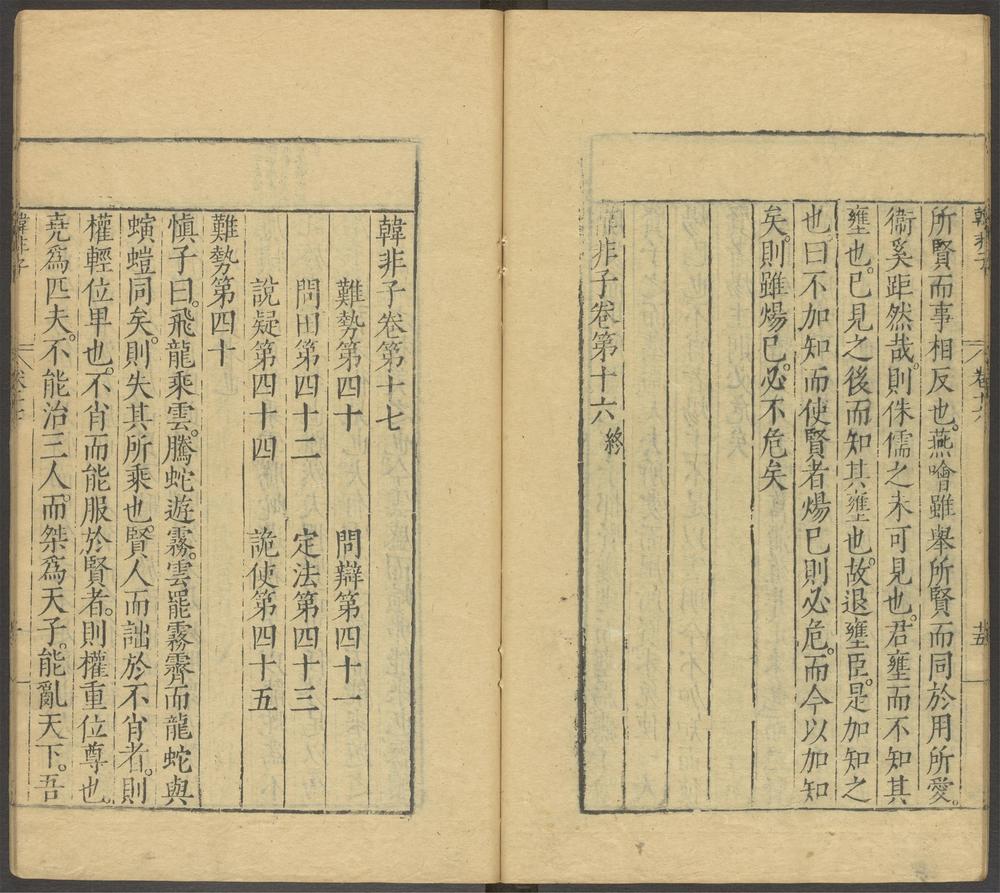 韓非子
卷十六
十五
所賢而事相反也。燕噲雖舉所賢而同於用所愛。
衞奚距然哉。則侏儒之未可見也。君壅而不知其
壅也。巳見之後而知其壅也。故退壅臣。是加知之
也。曰不加知而使賢者煬巳則必危。而今以加知
矣。則雖煬巳。必不危矣
韓非子卷第十六終
韓非子卷第十七
難勢第四十　問辯第四十一
問田第四十二　定法第四十三
說疑第四十四　詭使第四十五
難勢第四十
慎子曰。飛龍乘雲。騰蛇遊霧。雲罷霧霽而龍蛇與
螾螘同矣。則失其所乘也。賢人而詘於不肖者。則
權輕位卑也。不肖而能服於賢者。則權重位尊也。
堯爲匹夫。不能治三人。而桀爲天子。能亂天下。吾
韓非子
卷十七
一